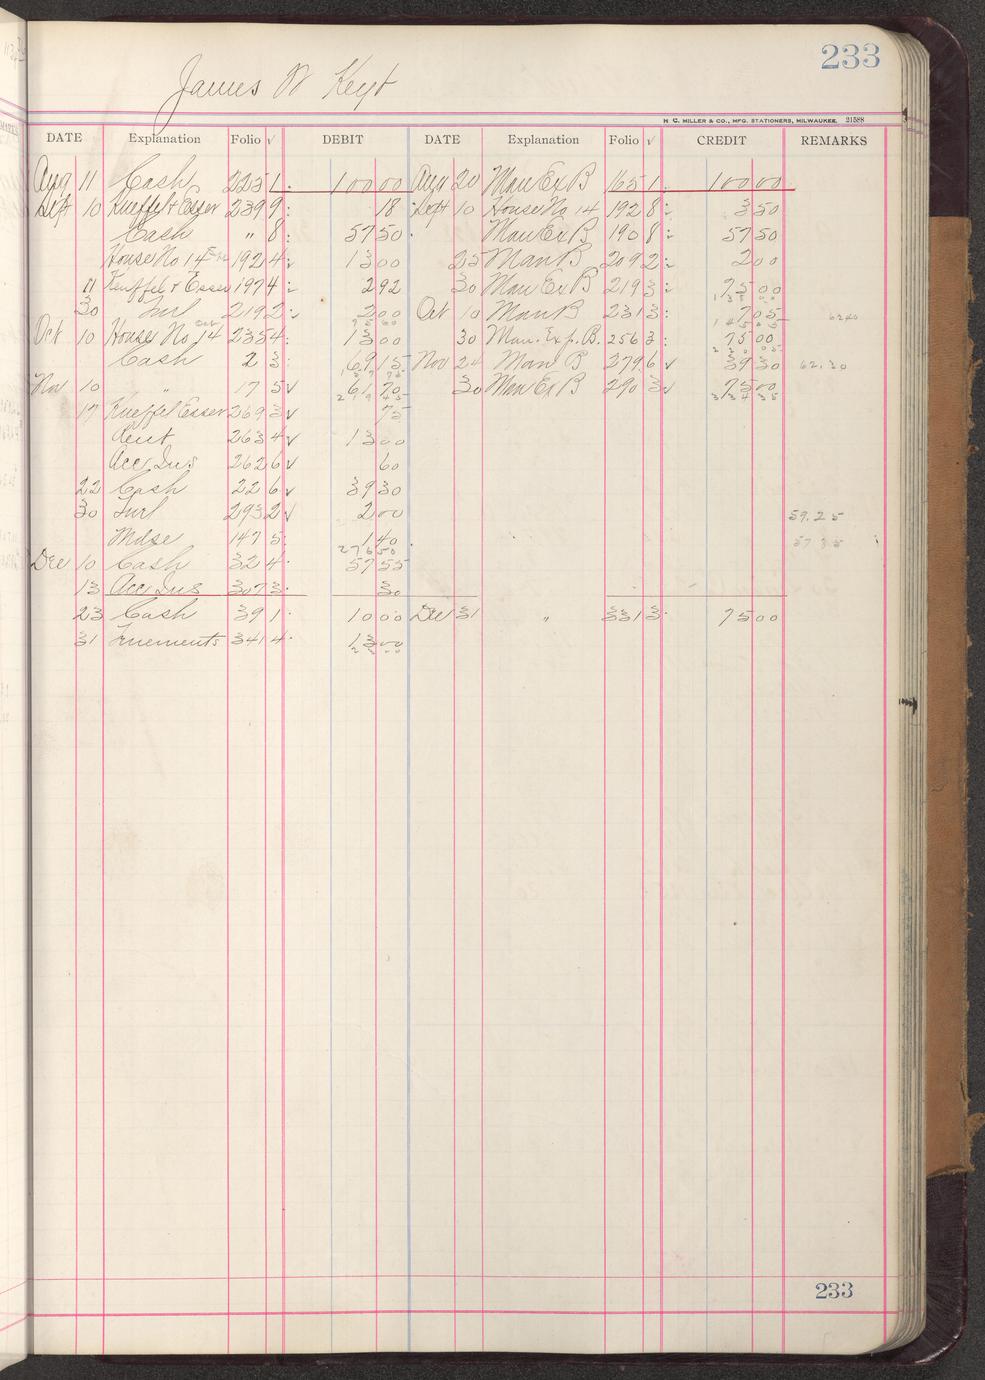 233
James W Keyt
H. C. MILLER & CO., MFG. STATIONERS, MILWAUKEE. 21588
DATE Explanation Folio √ DEBIT DATE Explanation Folio √ CREDIT REMARKS
Aug 11 Cash 225 1 100 00 Aug 20 Man Ex B 165 1 100 00
Sept 10 Kueffel + Esser 239 9 18 Sept 10 House No 14 192 8 3 50
Cash " 8 57 50 Man Ex B 190 8 57 50
House No 14 192 4 13 00 25 Man B 209 2 2 00
11 Keuffel + Esser 197 4 2 92 30 Man Ex B 219 3 75 00
30 Furl 219 2 2 00 Oct 10 Man B 231 3 7 05 62 40
Oct 10 House No 14 Oct 235 4 13 00 30 Man. Exp. B. 256 3 75 00
Cash 2 3 69 15 Nov 24 Man B 279 6 √ 39 30 62.30
Nov 10 " 17 5 √ 61 70 30 Man Ex B 290 3 √ 75 00
17 Kueffel Esser 269 3 √ 75
Rent 263 4 √ 13 00
Acc Ins 262 6 √ 60
22 Cash 22 6 √ 39 30
30 Furl 293 2 √ 2 00 59.25
Mdse 147 5 1 40 57 35
276 50
Dec 10 Cash 32 4 57 55
13 Acc Ins 307 3 30
23 Cash 39 1 10 00 Dec 31 " 331 3 75 00
31 Tenements 341 4 13 00
233